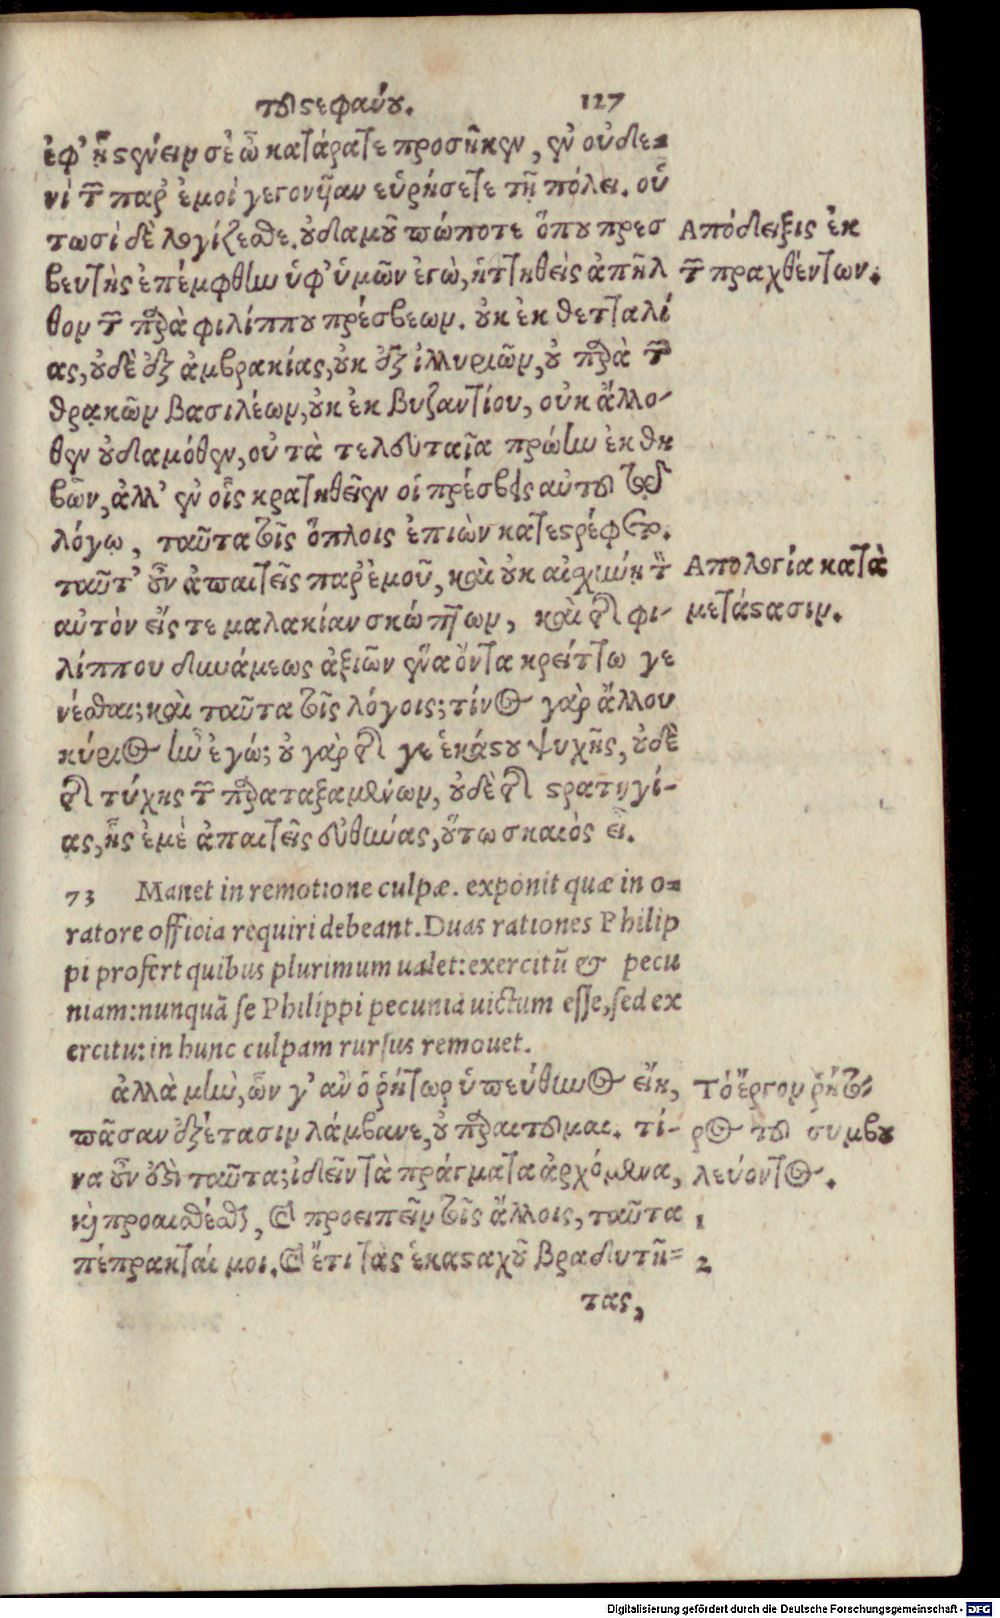 τοῦ στεφάνου. 127
ἐφ' ᾗ στένειν σε ὦ κατάρατε προσῆκεν, ἐν οὐδε-
νὶ τῶν παρ' ἐμοὶ γεγονυῖαν εὑρήσετε τῇ πόλει. οὑ
τωσὶ δὲ λογίζεσθε. οὐδαμοῦ πώποτε ὅπου πρεσ
βευτὴς ἐπέμφθην ὑφ' ὑμῶν ἐγὼ, ἡττηθεὶς ἀπῆλ
θον τῶν παρὰ φιλίππου πρέσβεων. οὐκ ἐκ θετταλί
ας, οὐδὲ ἐξ ἀμβρακίας, οὐκ ἐξ ἰλλυριῶν, οὐ παρὰ τῶν
θρᾳκῶν βασιλέων, οὐκ ἐκ βυζαντίου, οὐκ ἄλλο-
θεν οὐδαμόθεν, οὐ τὰ τελευταῖα πρώην ἐκ θη
βῶν, ἀλλ' ἐν οἷς κρατηθεῖεν οἱ πρέσβεις αὐτοῦ τῷ
λόγῳ, ταῦτα τοῖς ὅπλοις ἐπιὼν κατεστρέφετο.
ταῦτ' οὖν ἀπαιτεῖς παρ' ἐμοῦ, καὶ οὐκ αἰσχύνῃ τὸν
αὐτὸν εἴς τε μαλακίαν σκώπτων, καὶ τῆς φι-
λίππου δυνάμεως ἀξιῶν ἕνα ὄντα κρείττω γε
νέσθαι; καὶ ταῦτα τοῖς λόγοις; τίνος γὰρ ἄλλου
κύριος ἦν ἐγώ; οὐ γὰρ τῆς γε ἑκάστου ψυχῆς, οὐδὲ
τῆς τύχης τῶν παραταξαμένων, οὐδὲ τῆς στρατηγί-
ας, ἧς ἐμὲ ἀπαιτεῖς εὐθύνας, οὕτω σκαιὸς εἶ.
73 Manet in remotione culpæ. exponit quæ in o-
ratore officia requiri debeant. Duas rationes Philip
pi profert quibus plurimum ualet: exercitū & pecu
niam: nunquā se Philippi pecunia uictum esse, sed ex
ercitu: in hunc culpam rursus remouet.
ἀλλὰ μὴν, ὧν γ' ἂν ὁ ῥήτωρ ὑπεύθυνος εἴη,
πᾶσαν ἐξέτασιν λάμβανε, οὐ παραιτοῦμαι. τί-
να οὖν ἐστι ταῦτα; ἰδεῖν τὰ πράγματα ἀρχόμενα,
καὶ προαισθέσθαι, καὶ προειπεῖν τοῖς ἄλλοις, ταῦτα
πέπρακταί μοι. καὶ ἔτι τὰς ἑκασταχοῦ βραδυτῆ-
τας,
Ἀπόδειξις ἐκ
τῶν πραχθέντων.
Ἀπολογία κατὰ
μετάστασιν.
Τὸ ἔργον ῥήτο-
ρος τοῦ συμβου
λεύοντος.
1
2
Digitalisierung gefördert durch die Deutsche Forschungsgemeinschaft - DFG